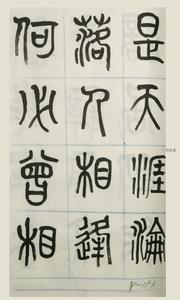 是天涯淪
落人相逢
何必曾相